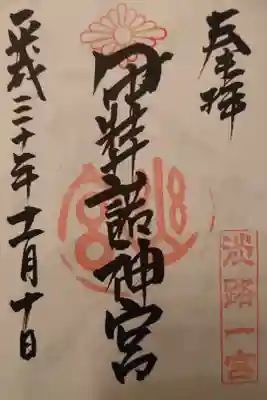 奉拝
淡路一宮
伊弉諾神宮
平成三十年十一月十日